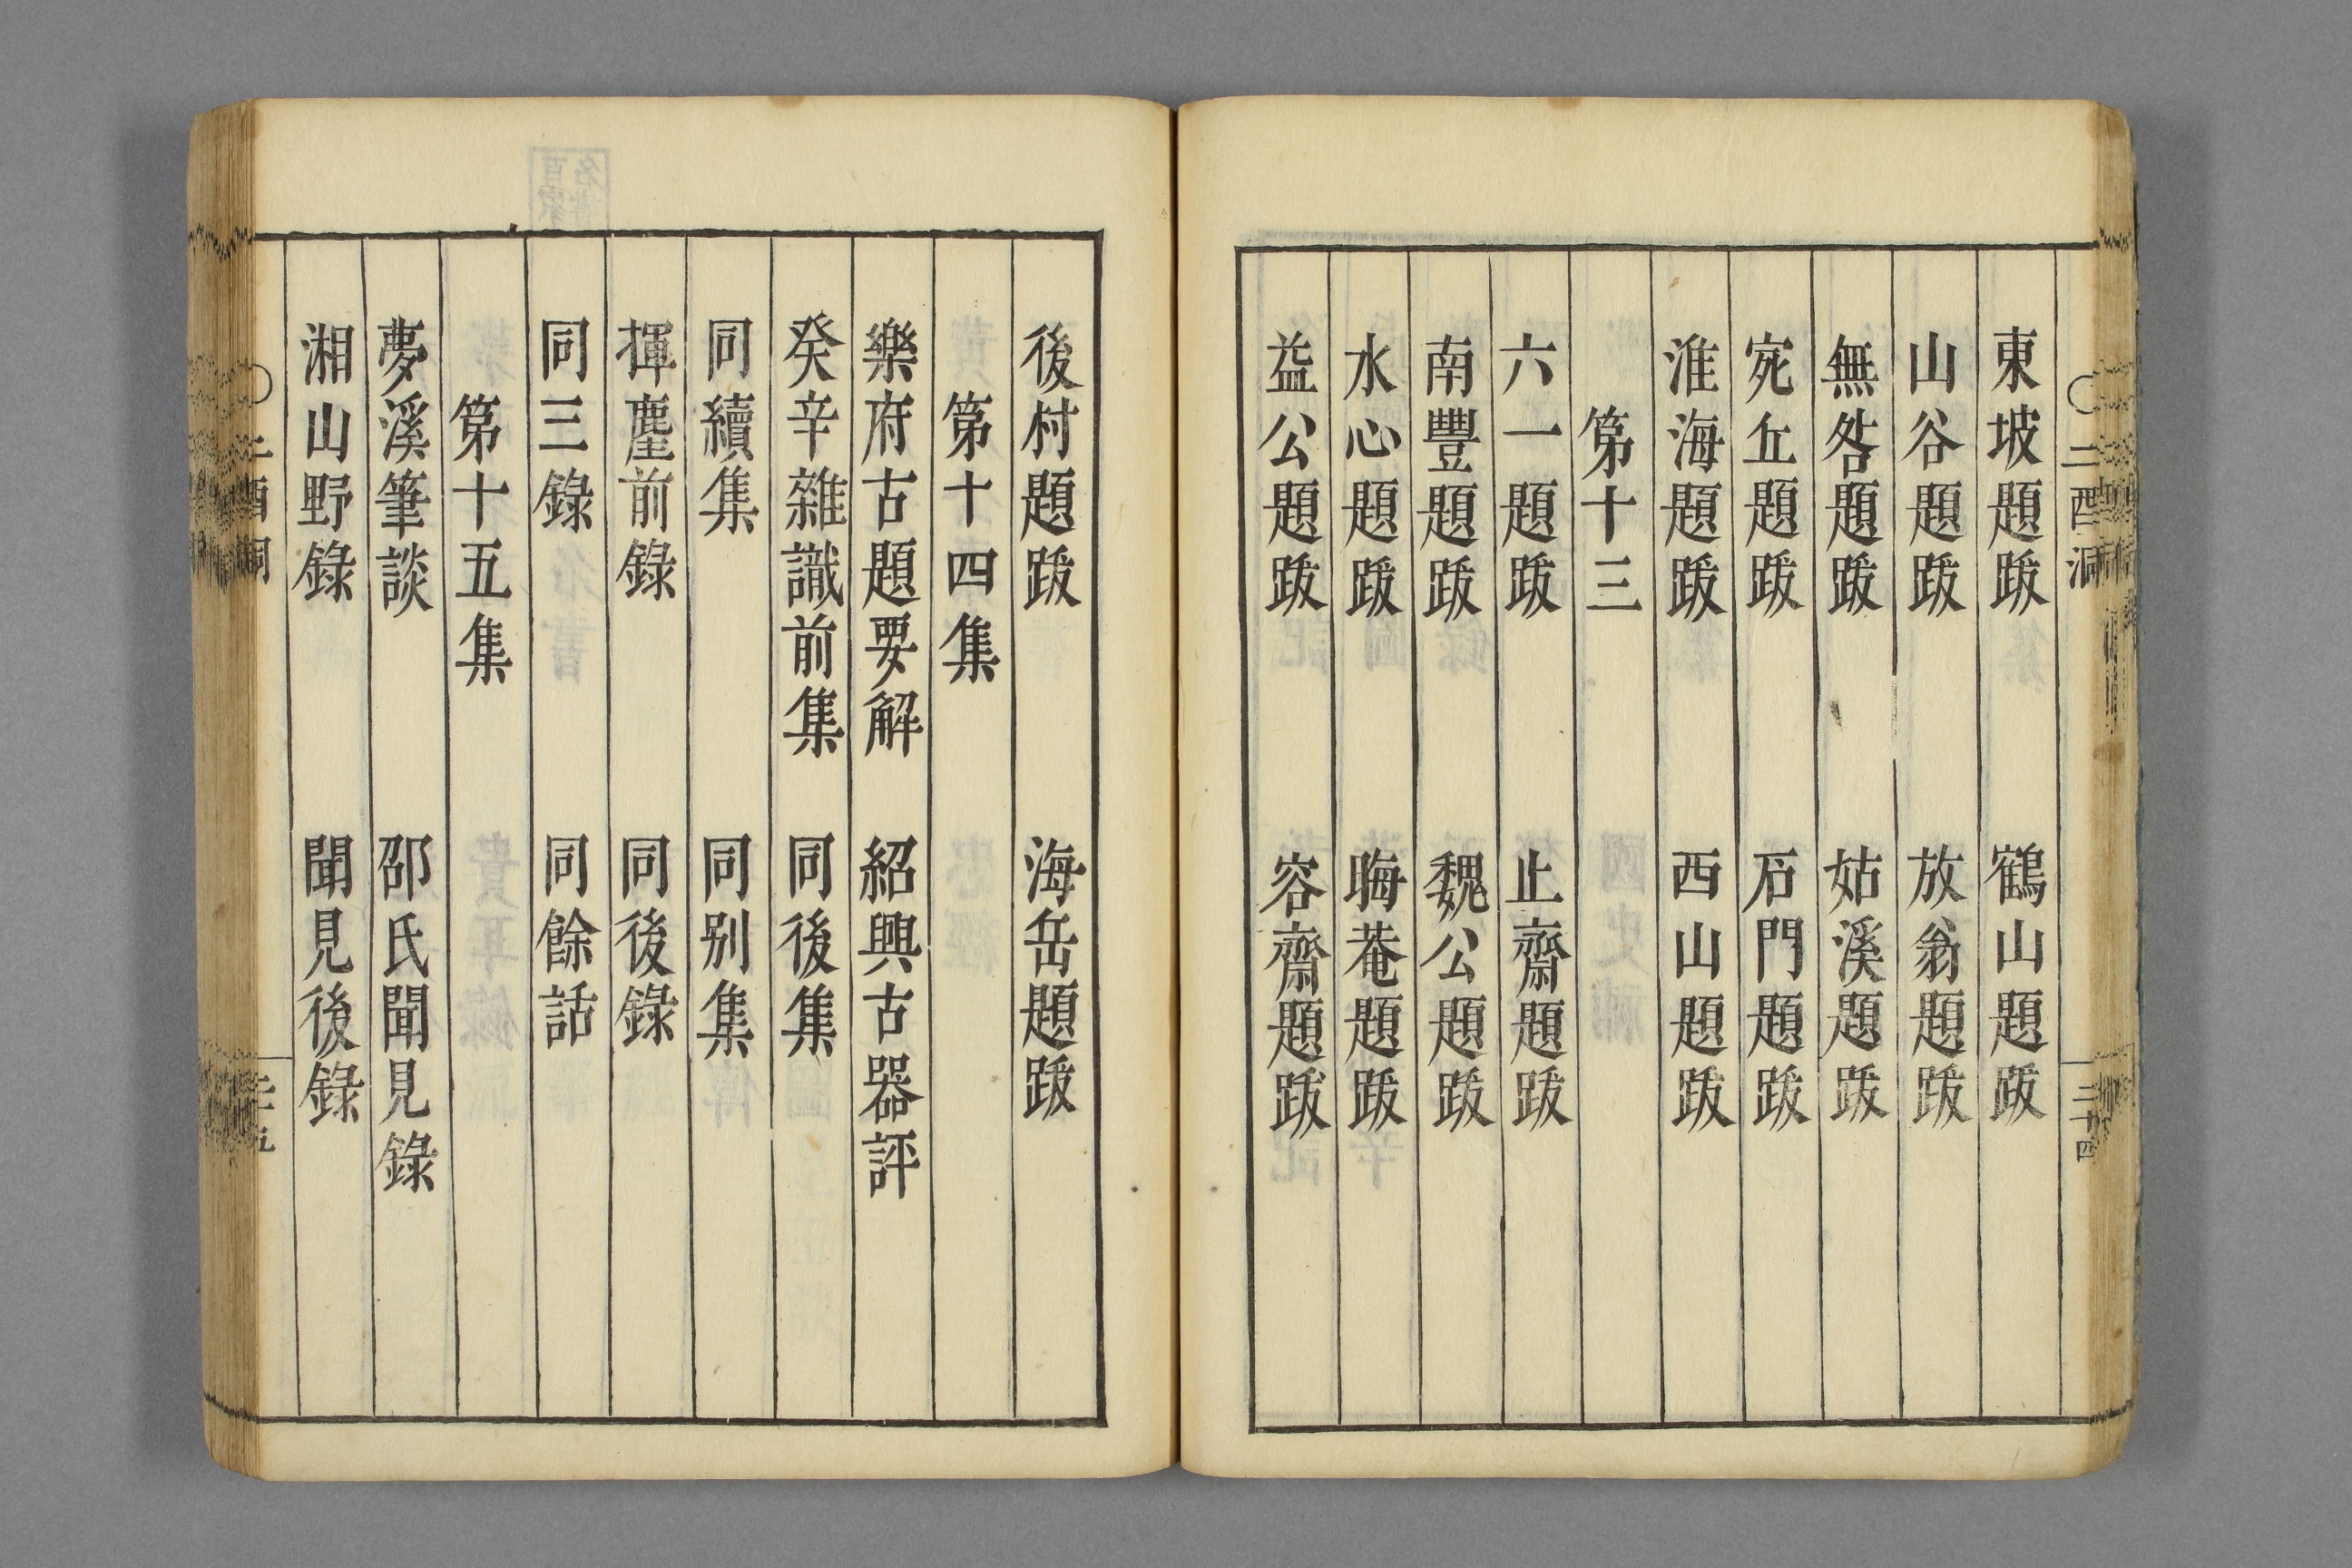 東坡題跋 鶴山題跋
山谷題跋 放翁題跋
無咎題跋 姑溪題跋
宛丘題跋 石門題跋
淮海題跋 西山題跋
第十三
六一題跋 止齋題跋
南豐題跋 魏公題跋
水心題跋 晦菴題跋
益公題跋 容齋題跋
後村題跋 海岳題跋
第十四集
樂府古題要解 紹興古器評
癸辛雜識前集 同後集
同續集 同別集
揮麈前錄 同後錄
同三錄 同餘話
第十五集
夢溪筆談 邵氏聞見錄
湘山野錄 聞見後錄